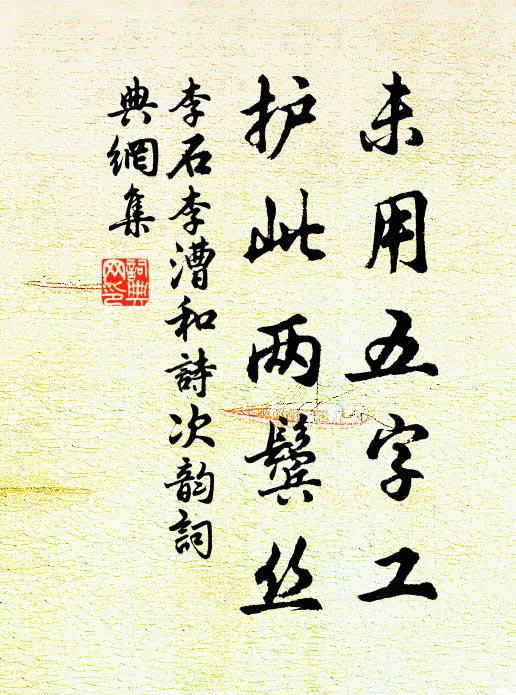 未用五字工
护此两鬓丝
李石李漕和詩次韵詞
典網集
詞典
网印